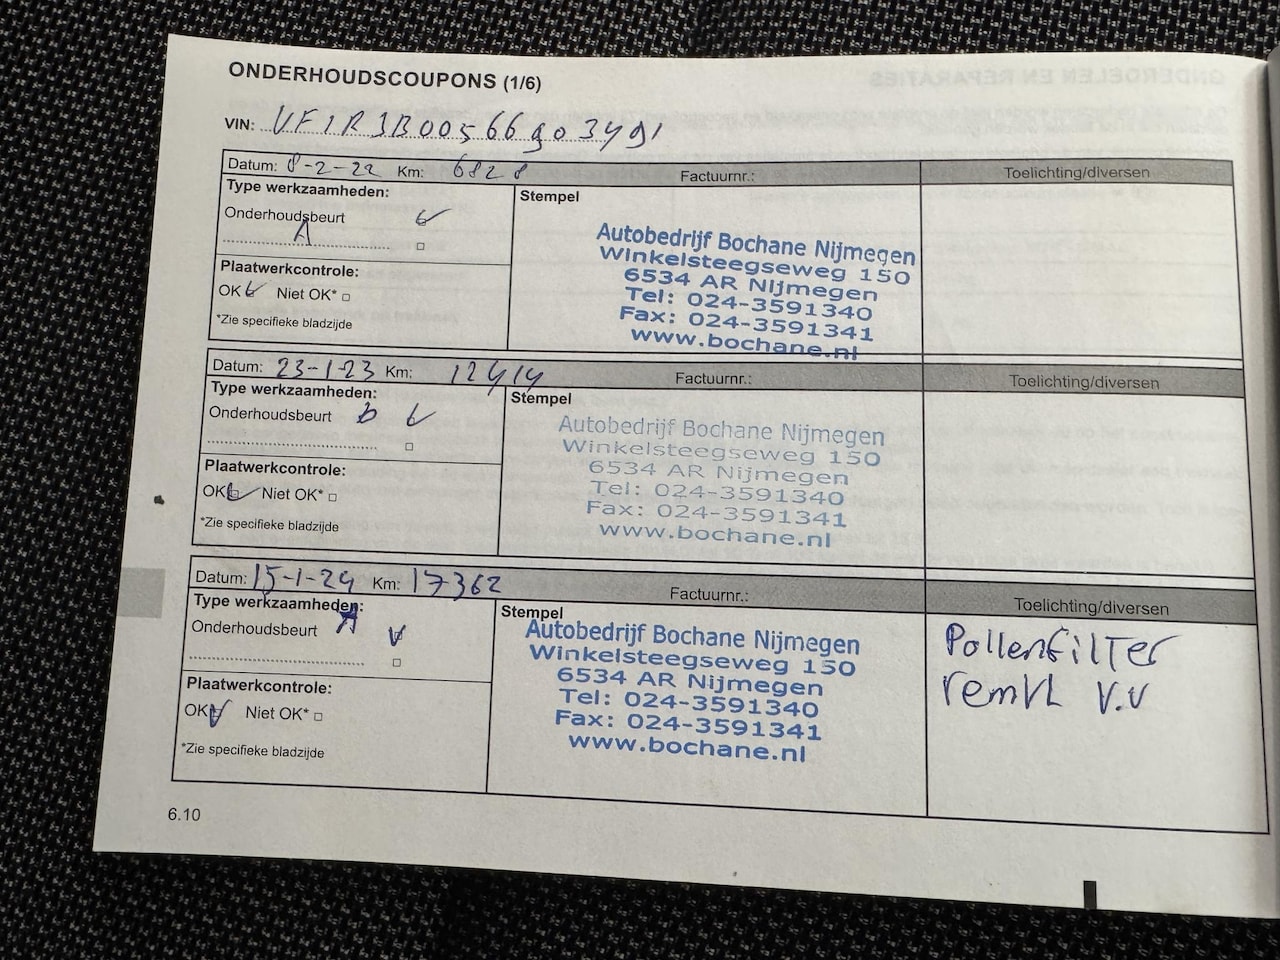 ONDERHOUDSCOUPONS (1/6)
VIN: VF1RJB00566903491
Datum: 8-2-22 Km: 6828 Factuurnr.: Toelichting/diversen
Type werkzaamheden:
Onderhoudsbeurt
A
Plaatwerkcontrole:
OK Niet OK*
*Zie specifieke bladzijde
Stempel
Autobedrijf Bochane Nijmegen
Winkelsteegseweg 150
6534 AR Nijmegen
Tel: 024-3591340
Fax: 024-3591341
www.bochane.nl
Datum: 23-1-23 Km: 12414 Factuurnr.: Toelichting/diversen
Type werkzaamheden:
Onderhoudsbeurt b
Plaatwerkcontrole:
OK Niet OK*
*Zie specifieke bladzijde
Stempel
Autobedrijf Bochane Nijmegen
Winkelsteegseweg 150
6534 AR Nijmegen
Tel: 024-3591340
Fax: 024-3591341
www.bochane.nl
Datum: 15-1-24 Km: 17362 Factuurnr.: Toelichting/diversen
Type werkzaamheden:
A
Onderhoudsbeurt
Plaatwerkcontrole:
OK Niet OK*
*Zie specifieke bladzijde
Stempel
Autobedrijf Bochane Nijmegen
Winkelsteegseweg 150
6534 AR Nijmegen
Tel: 024-3591340
Fax: 024-3591341
www.bochane.nl
Pollenfilter
remVL V.V
6.10